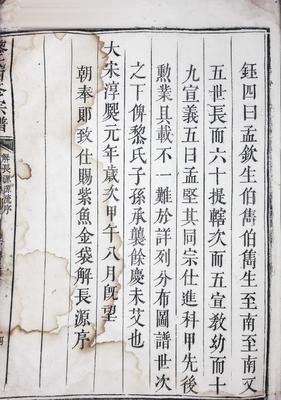 鈺四曰孟欽生伯儁伯儁生至南至南又
五世長而六十提轄次而五宣教幼而十
九宣義五曰孟堅其同宗仕進科甲先後
勲業具載不一難於詳列分布圖譜世次
之下俾黎氏子孫承襲餘慶未艾也
大宋淳熈元年歲次甲午八月既望
朝奉郎致仕賜紫魚金袋解長源序
解長源流序